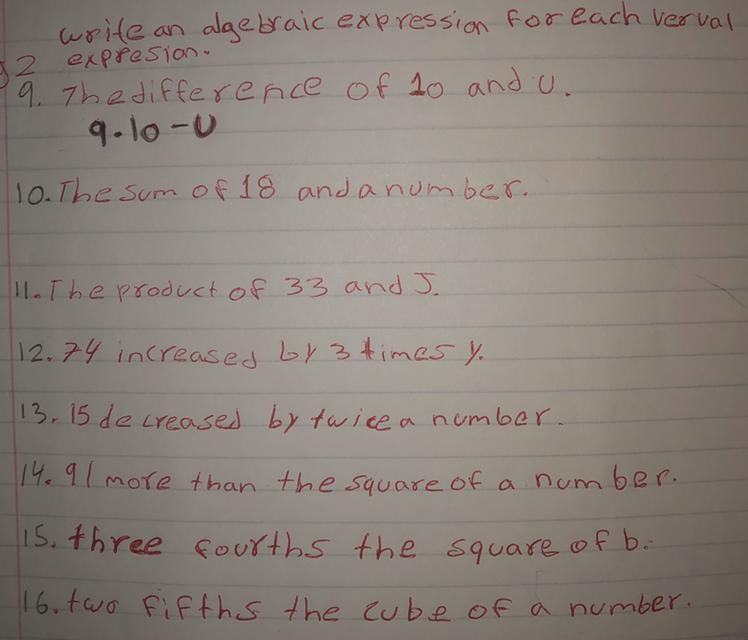 write an algebraic expression for each verval
g2 expresion.
9. The difference of 10 and U.
9. 10-U
10. The sum of 18 and a number.
11. The product of 33 and J.
12. 74 increased by 3 times y.
13. 15 decreased by twice a number.
14. 91 more than the square of a number.
15. three fourths the square of b.
16. two fifths the cube of a number.